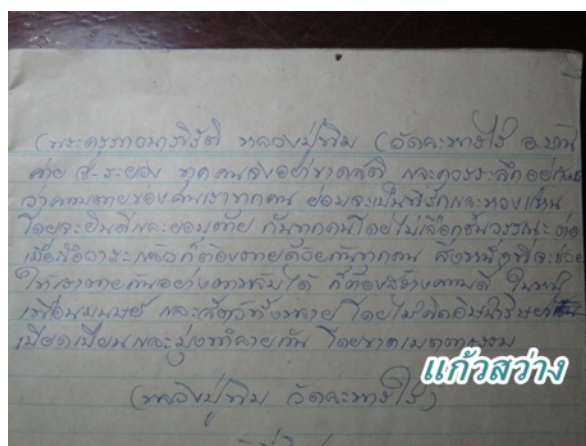 (พระครูภาวนาภิรัติ หลวงปู่ทิม (วัดละหารไร่ อ.บ้าน
ค่าย จ.ระยอง ทุกคนจงอย่าขาดสติ และควรระลึกอยู่เสมอ
ว่าความตายของคนเราทุกคน ย่อมจะเป็นที่รักและหวงแหน
โดยจะยินดีและยอมตาย กันทุกคนโดยไม่เลือกชั้นวรรณะ ต่อ
เมื่อถึงวาระแล้วก็ต้องตายด้วยกันทุกคน สิ่งหนึ่งที่จะช่วย
ให้เราตายกันอย่างตาหลับได้ ก็ต้องสร้างความดี
เพื่อนมนุษย์ และสัตว์ทั้งหลาย โดยไม่คิดอิจฉาริษยา
เบียดเบียนและมุ่งทำลายกัน โดยขาดเมตตาธรรม
แก้วสว่าง
(หลวงปู่ทิม วัดละหารไร่)